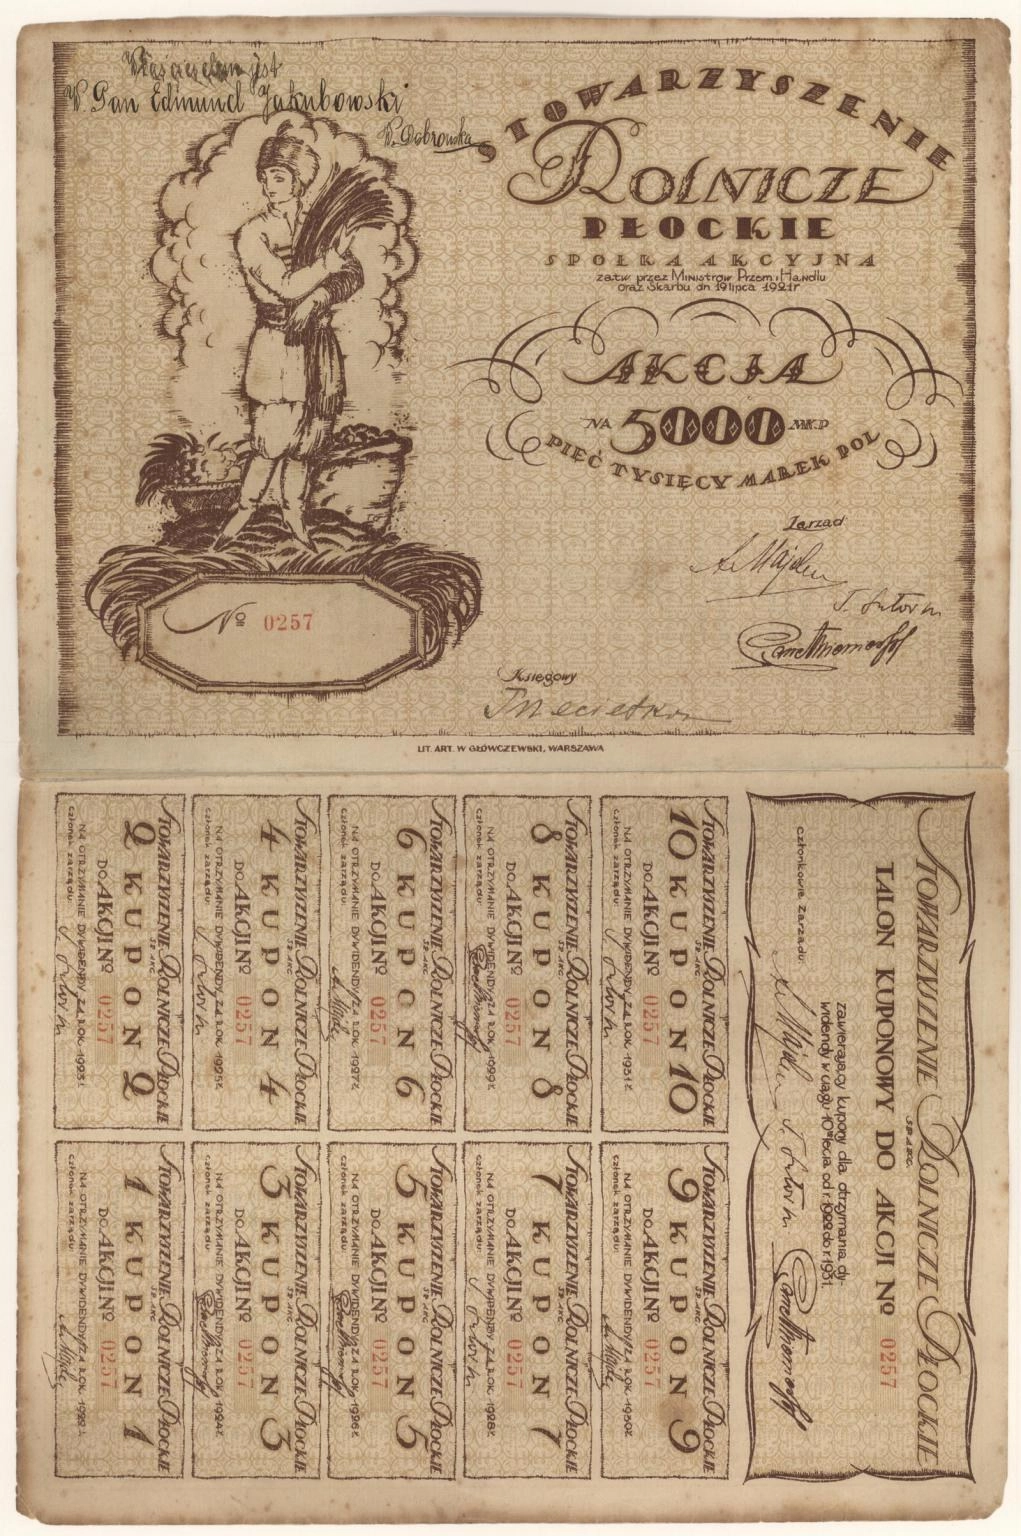 Właścicielem jest
W. Pan Edmund Jakubowski
W. Dobrowska
STOWARZYSZENIE
ROLNICZE
PŁOCKIE
SPÓŁKA AKCYJNA
zatw. przez Ministrów Przem. i Handlu
oraz Skarbu dn 19 lipca 1921 r
AKCJA
NA 5000 MK.P
PIĘĆ TYSIĘCY MAREK POL
Zarząd
A. Majde
Nº 0257
Księgowy
LIT. ART. W GŁÓWCZEWSKI, WARSZAWA
STOWARZYSZENIE ROLNICZE PŁOCKIE
SP. AKC.
TALON KUPONOWY DO AKCJI Nº 0257
zawierający kupony dla otrzymania dy-
widendy w ciągu 10ⁱᵒ lecia od r. 1922 do r. 1931.
członkowie zarządu:
STOWARZYSZENIE ROLNICZE PŁOCKIE
SP. AKC.
10 KUPON 10
DO AKCJI Nº 0257
NA OTRZYMANIE DYWIDENDY ZA ROK 1931 r.
członek zarządu:
STOWARZYSZENIE ROLNICZE PŁOCKIE
SP. AKC.
9 KUPON 9
DO AKCJI Nº 0257
NA OTRZYMANIE DYWIDENDY ZA ROK 1930 r.
członek zarządu:
STOWARZYSZENIE ROLNICZE PŁOCKIE
SP. AKC.
8 KUPON 8
DO AKCJI Nº 0257
NA OTRZYMANIE DYWIDENDY ZA ROK 1929 r.
członek zarządu:
STOWARZYSZENIE ROLNICZE PŁOCKIE
SP. AKC.
7 KUPON 7
DO AKCJI Nº 0257
NA OTRZYMANIE DYWIDENDY ZA ROK 1928 r.
członek zarządu:
STOWARZYSZENIE ROLNICZE PŁOCKIE
SP. AKC.
6 KUPON 6
DO AKCJI Nº 0257
NA OTRZYMANIE DYWIDENDY ZA ROK 1927 r.
członek zarządu:
STOWARZYSZENIE ROLNICZE PŁOCKIE
SP. AKC.
5 KUPON 5
DO AKCJI Nº 0257
NA OTRZYMANIE DYWIDENDY ZA ROK 1926 r.
członek zarządu:
STOWARZYSZENIE ROLNICZE PŁOCKIE
SP. AKC.
4 KUPON 4
DO AKCJI Nº 0257
NA OTRZYMANIE DYWIDENDY ZA ROK 1925 r.
członek zarządu:
STOWARZYSZENIE ROLNICZE PŁOCKIE
SP. AKC.
3 KUPON 3
DO AKCJI Nº 0257
NA OTRZYMANIE DYWIDENDY ZA ROK 1924 r.
członek zarządu:
STOWARZYSZENIE ROLNICZE PŁOCKIE
SP. AKC.
2 KUPON 2
DO AKCJI Nº 0257
NA OTRZYMANIE DYWIDENDY ZA ROK 1923 r.
członek zarządu:
STOWARZYSZENIE ROLNICZE PŁOCKIE
SP. AKC.
1 KUPON 1
DO AKCJI Nº 0257
NA OTRZYMANIE DYWIDENDY ZA ROK 1922 r.
członek zarządu: